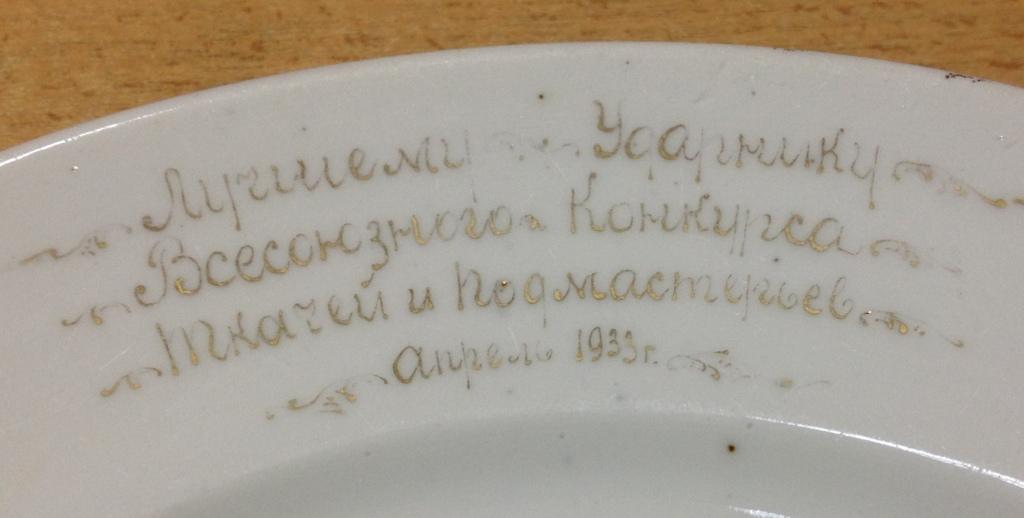 Лучшему Ударнику
Всесоюзного Конкурса
Ткачей и Подмастерьев
Апрель 1933 г.